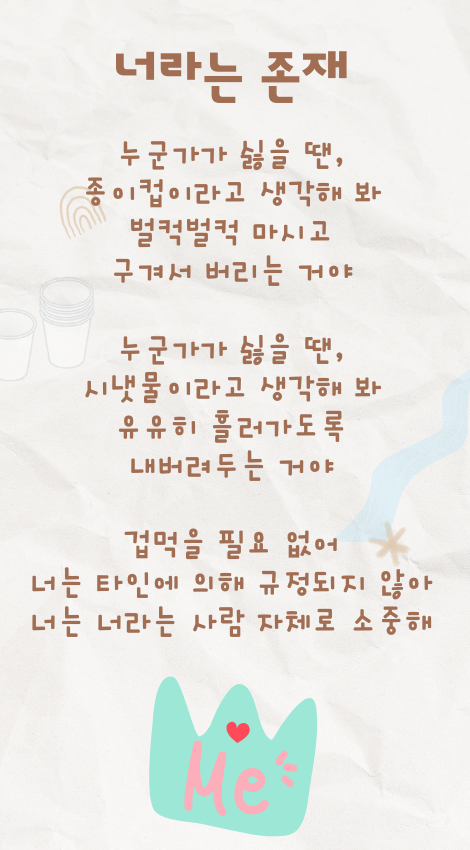 너라는 존재
누군가가 싫을 땐,
종이컵이라고 생각해 봐
벌컥벌컥 마시고
구겨서 버리는 거야
누군가가 싫을 땐,
시냇물이라고 생각해 봐
유유히 흘러가도록
내버려두는 거야
겁먹을 필요 없어
너는 타인에 의해 규정되지 않아
너는 너라는 사람 자체로 소중해
Me